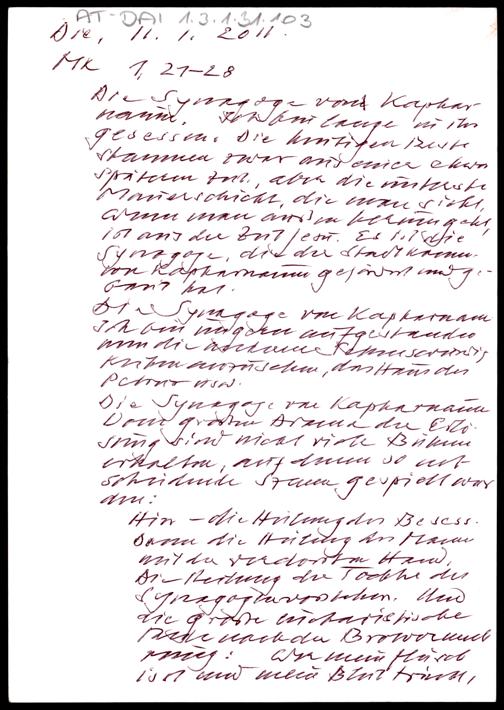 AT-DAI 1.3.1.31.103
Die, 11. 1. 2011.
Mk 1, 21-28
Die Synagoge von Kaphar-
naum. Ich bin lange in ihr
gesessen. Die heutigen Reste
stammen zwar aus einer etwas
späteren Zeit, aber die unterste
Mauerschicht, die man sieht,
wenn man außen herumgeht,
ist aus der Zeit Jesu. Es ist die
Synagoge, die der Stadtkomm.
von Kapharnaum gefördert und ge-
baut hat.
Die Synagoge von Kapharnaum
Ich bin ungern aufgestanden
um die anderen
, das Haus des
Petrus usw.
Die Synagoge von Kapharnaum
Vom großen Drama der Erlö-
sung sind nicht viele Bühnen
erhalten, auf denen so ent-
scheidende Szenen gespielt wur
den:
Hier - die Heilung des Besess.
Dann die Heilung des Mannes
mit der verdorrten Hand,
Die Heilung der Tochter des
Synagogenvorstehers. Und
die große eucharistische
Rede nach der Brotvermeh
rung: Wer mein Fleisch
isst und mein Blut trinkt,